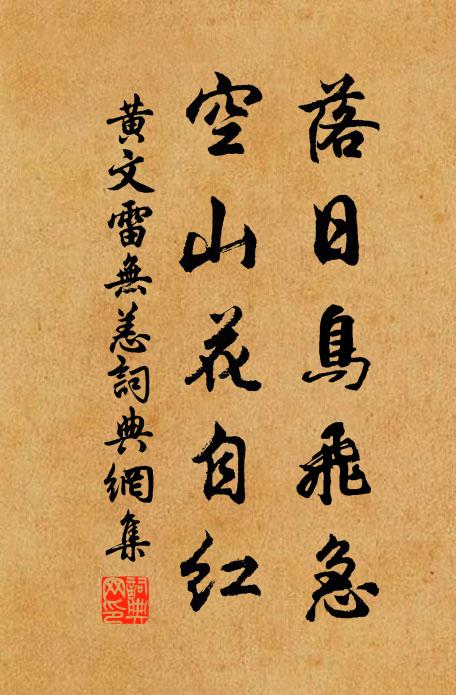 落日鳥飛急
空山花自紅
黄文雷無恙詞典網集
詞典網印